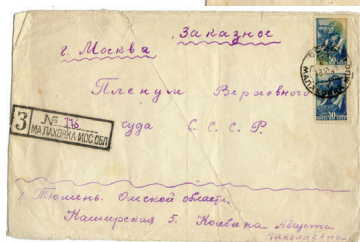 Заказное
г. Москва
Пленум Верховного
суда С. С. С. Р.
З № 116
МАЛАХОВКА МОС. ОБЛ
30
г. Тюмень. Омской области.
Каширская 5.